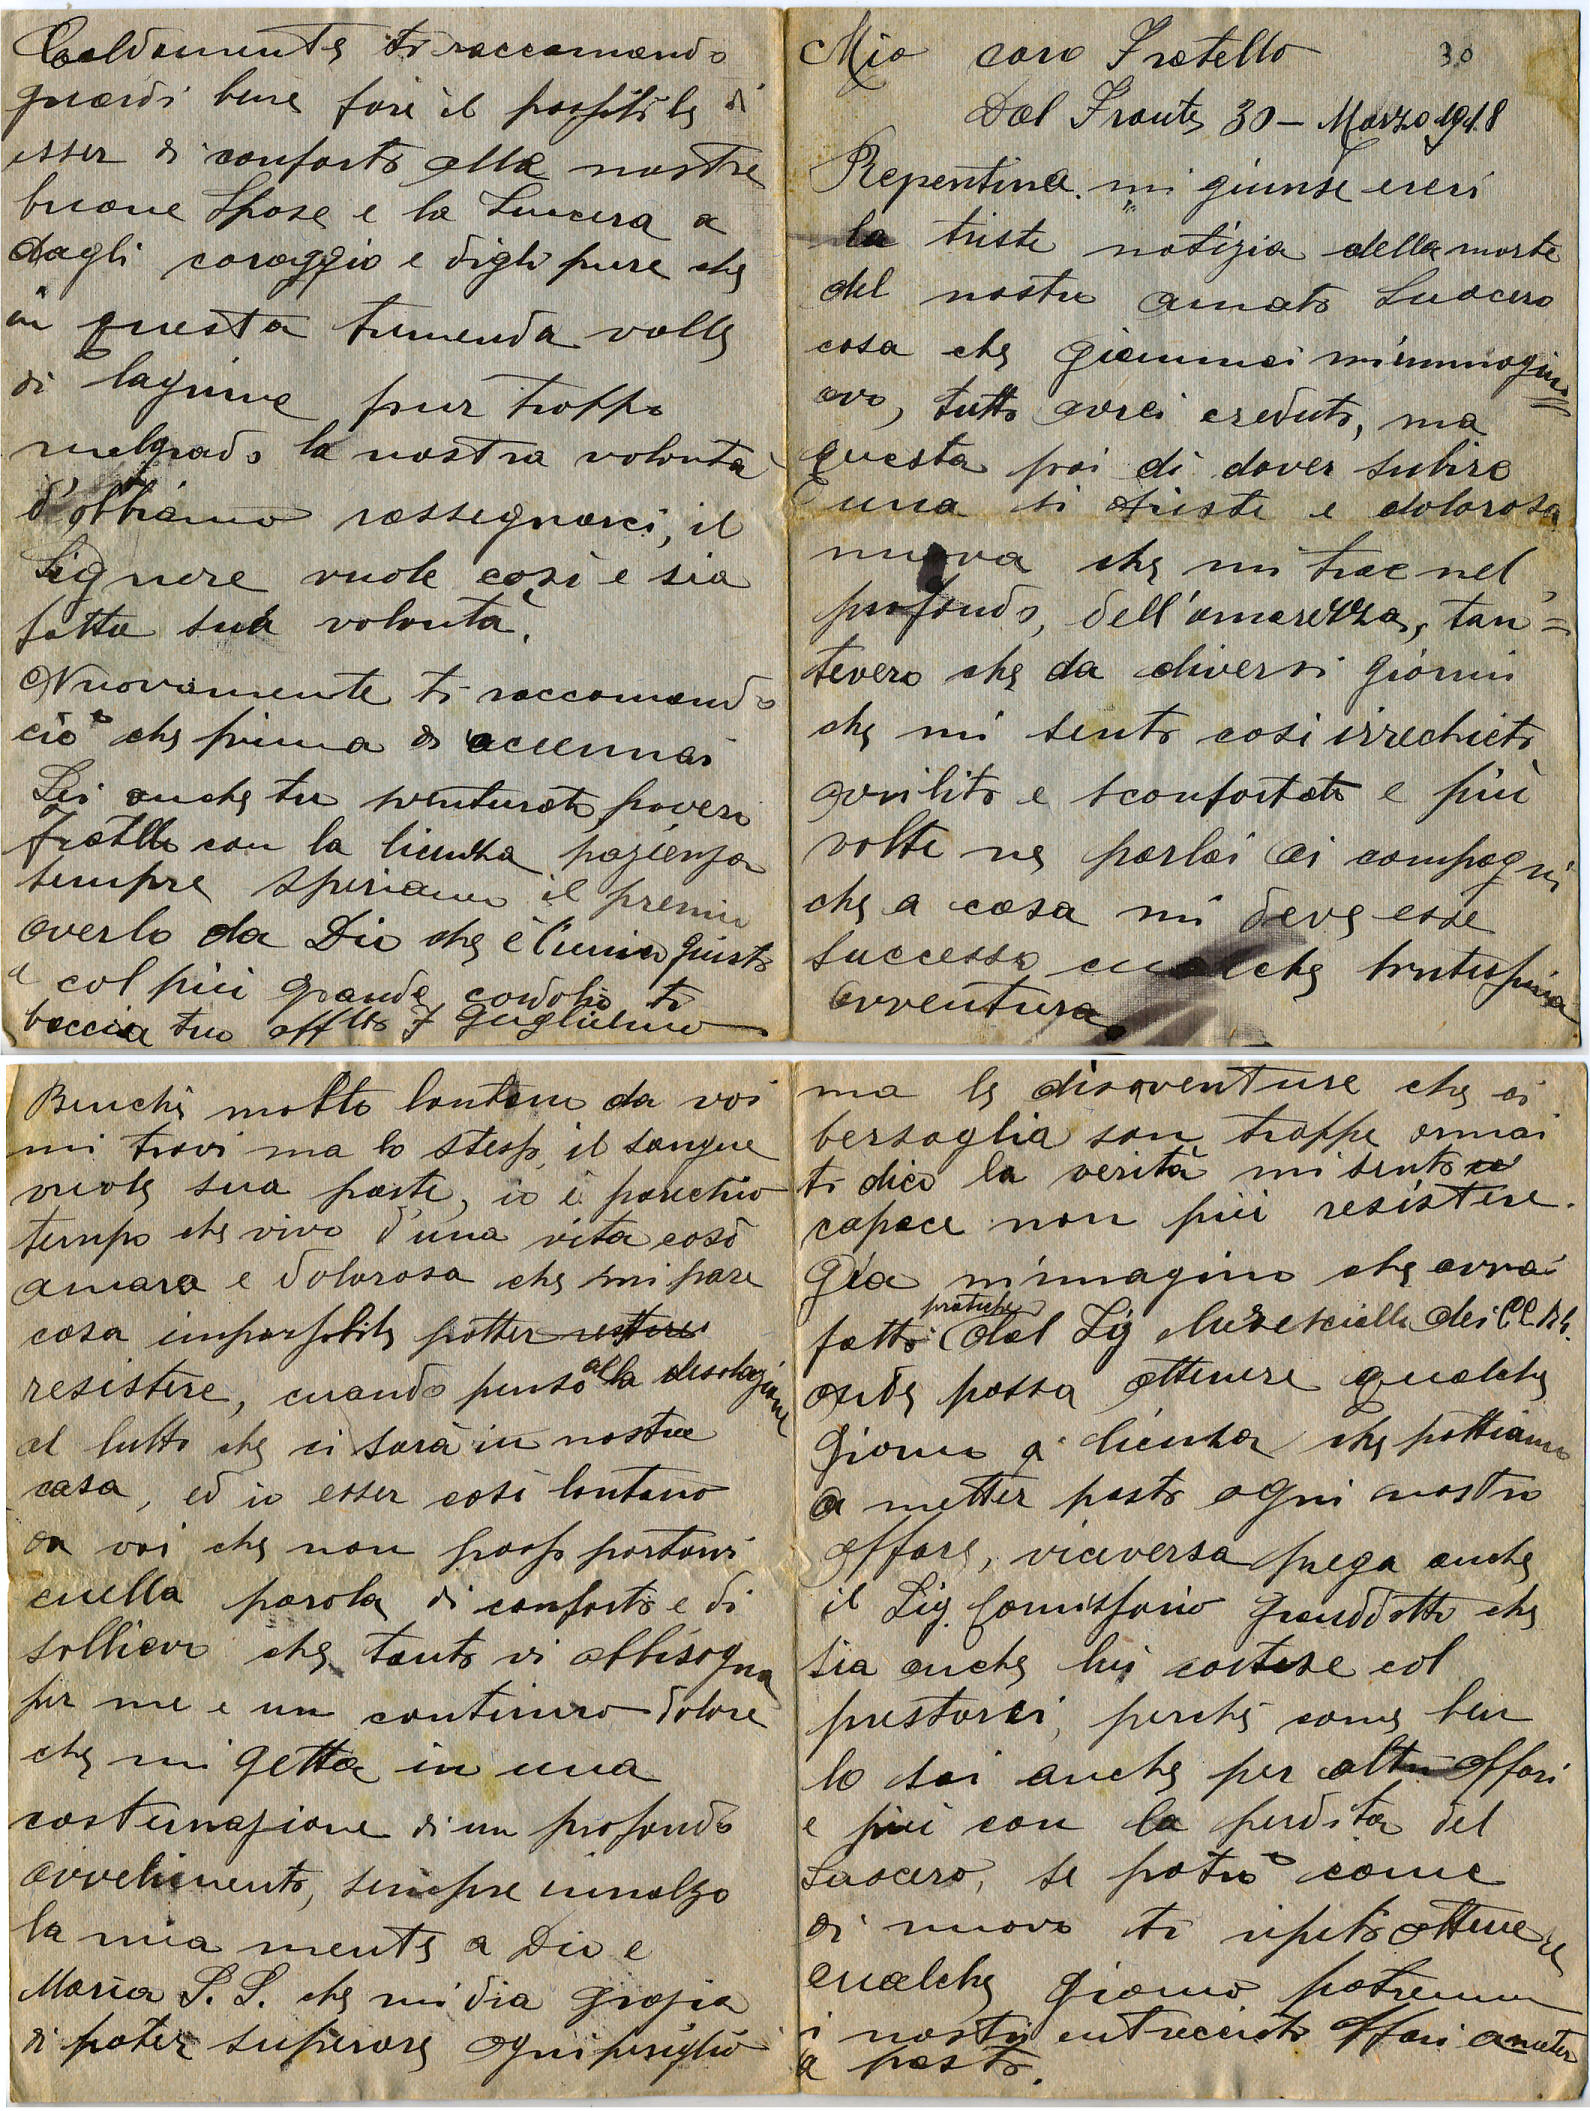 Mio caro Fratello 30
Dal Fronte 30 - Marzo 1918
Repentina mi giunse ereri
la triste notizia della morte
del nostro amato Suocero
cosa che giammai m'immagin=
avo, tutto avrei creduto, ma
questa poi di dover subire
una si triste e dolorosa
nuova che mi trae nel
profondo, dell'amarezza, tan=
tevero che da diversi giorni
che mi sento così irrechieto
avvilito e sconfortato e più
volte ne parlai ai compagni
che a casa mi deve esse
successo cualche bruttissima
avventura.
Benchè molto lontano da voi
mi trovi ma lo stesso, il sangue
vuole sua parte, io è parecchio
tempo che vivo d'una vita così
amara e dolorosa che mi pare
cosa impossibile potter restere
resistere, cuando penso alla desolazione
al lutto che ci sarà in nostra
casa, ed io esser così lontano
da voi che non posso portarvi
cuella parola di conforto e di
sollievo che tanto vi abbisogna
per me e un continuo dolore
che mi getta in una
costernazione di un profondo
avvelimento, sempre innalzo
la mia mente a Dio e
Maria S. S. che mi dia grazia
di poter superare ogni periglio
ma le disavventure che ci
bersaglia son troppe ormai
ti dico la verità mi sento in
capace non più resistere.
Già m'immagino che avrai
fatto pratiche dal Sig Maresciallo dei CC. RR.
onde possa ottenere qualche
giorno di licenza che pottiamo
a metter posto ogni nostro
affare, viceversa prega anche
il Sig. Comissario Granddotto che
sia anche lui cortese col
prestarci, perchè come ben
lo sai anche per altri affari
e più con la perdita del
Suocero, se potrò come
di nuovo ti ripeto ottenere
cualche giorno potremmo
i nostri entrecciati affari a meter
a posto.
Caldamente ti raccomando
guardi bene fare il possibile di
esser di conforto alle nostre
buone Spose e la Suocera a
dagli coraggio e digli pure che
in questa tremenda valle
di lagrime pur troppo
malgrado la nostra volontà
d'obbiamo rassegnarci, il
Signore vuole così e sia
fatta sua volontà.
Nuovamente ti raccomando
ciò che prima di accennai
Sei anche tu sventurato povero
Fratello con la licenza pazienza
sempre speriamo il premio
averlo da Dio che è l'unico giusto
e col più grande cordolio ti
baccia tuo aff.tto F Guglielmo